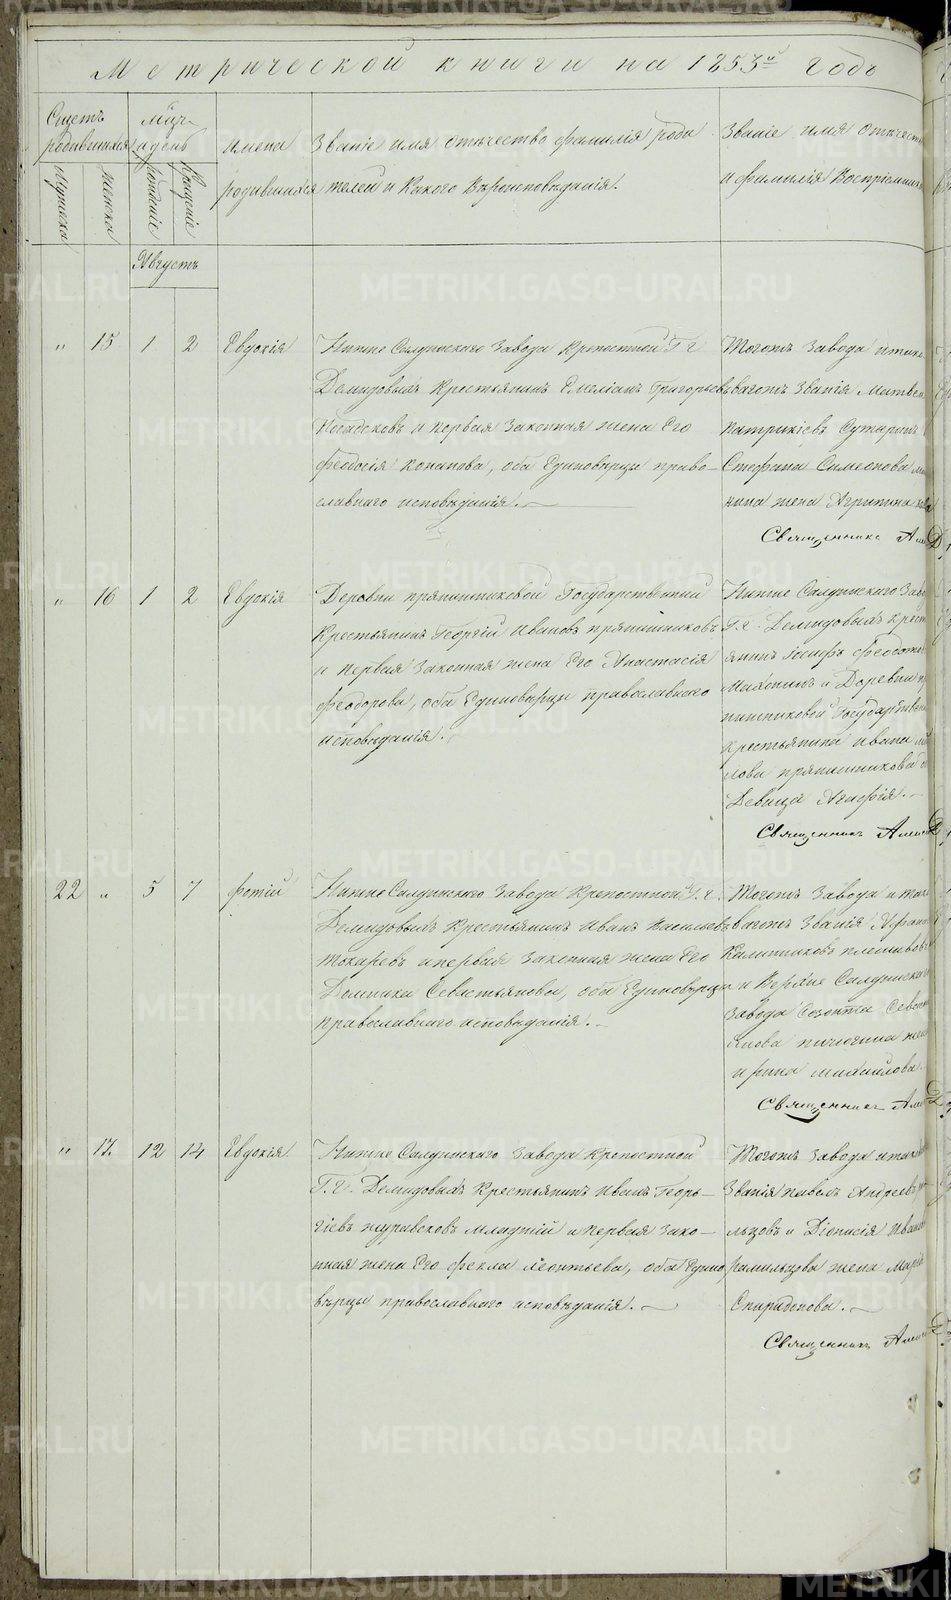 Метрической книги на 1853й годъ
Счетъ родившихся
мужеска
женска
рожденіе
Крещеніе
имена родившихся
Званіе имя отчество фамилія роди
телей и Какого Вѣроисповѣданія.
Званіе имя отчеств
и фамилія Воспріемник
Августъ
" 15 1 2 Евдокія
Нижне Салдинскаго Завода Крепостной Г. г.
Демидовыхъ Крестьянинъ Емеліанъ Григорьевъ
и первая Законная жена Его
Феодосія, оба Единовѣрцы право-
славнаго исповѣданія.
Тогожъ Завода и тако
вагожъ Званія Матвей
Патрикіевъ
Стефана Симеонова
жена
Священникъ
" 16 1 2 Евдокія
Деревни пряничниковой Государственный
Крестьянинъ Георгій Ивановъ пряничниковъ
и первая Законная жена Его Анастасія
Феодорова, оба Единовѣрцы православнаго
исповѣданія.
Нижне Салдинскаго Заво
Г. г. Демидовыхъ Крест
янинъ Іосифъ Феодото
и Деревни пр
яничниковой Государствен
крестьянина Ивана
лова пряничникова
Девица Агафія.
Священникъ
22 " 5 7 Фотій
Нижне Салдинскаго Завода Крепостной Г. г.
Демидовыхъ Крестьянинъ Иванъ Васильевъ
Токаревъ и первая Законная жена Его
Домника Севастьянова, оба Единовѣрцы
православнаго исповѣданія.
Тогожъ Завода и тако
вагожъ Званія
Калитиковъ
и Верхне Салдинскаго
Завода Созонта Севос
янова пичюгина жена
ирина михаилова.
Священникъ
" 17. 12 14 Евдокія
Нижне Салдинскаго Завода Крепостной
Г. г. Демидовыхъ Крестьянинъ Иванъ Геор-
гіевъ журавковъ младшій и первая Зако-
нная жена Его Фекла Леонтьева, оба Едино
вѣрцы православнаго исповѣданія.
Тогожъ Завода и таков
Званія павелъ Андреевъ
и Діонисія Иванов
жена Марія
Спиридонова.
Священникъ
METRIKI.GASO-URAL.RU